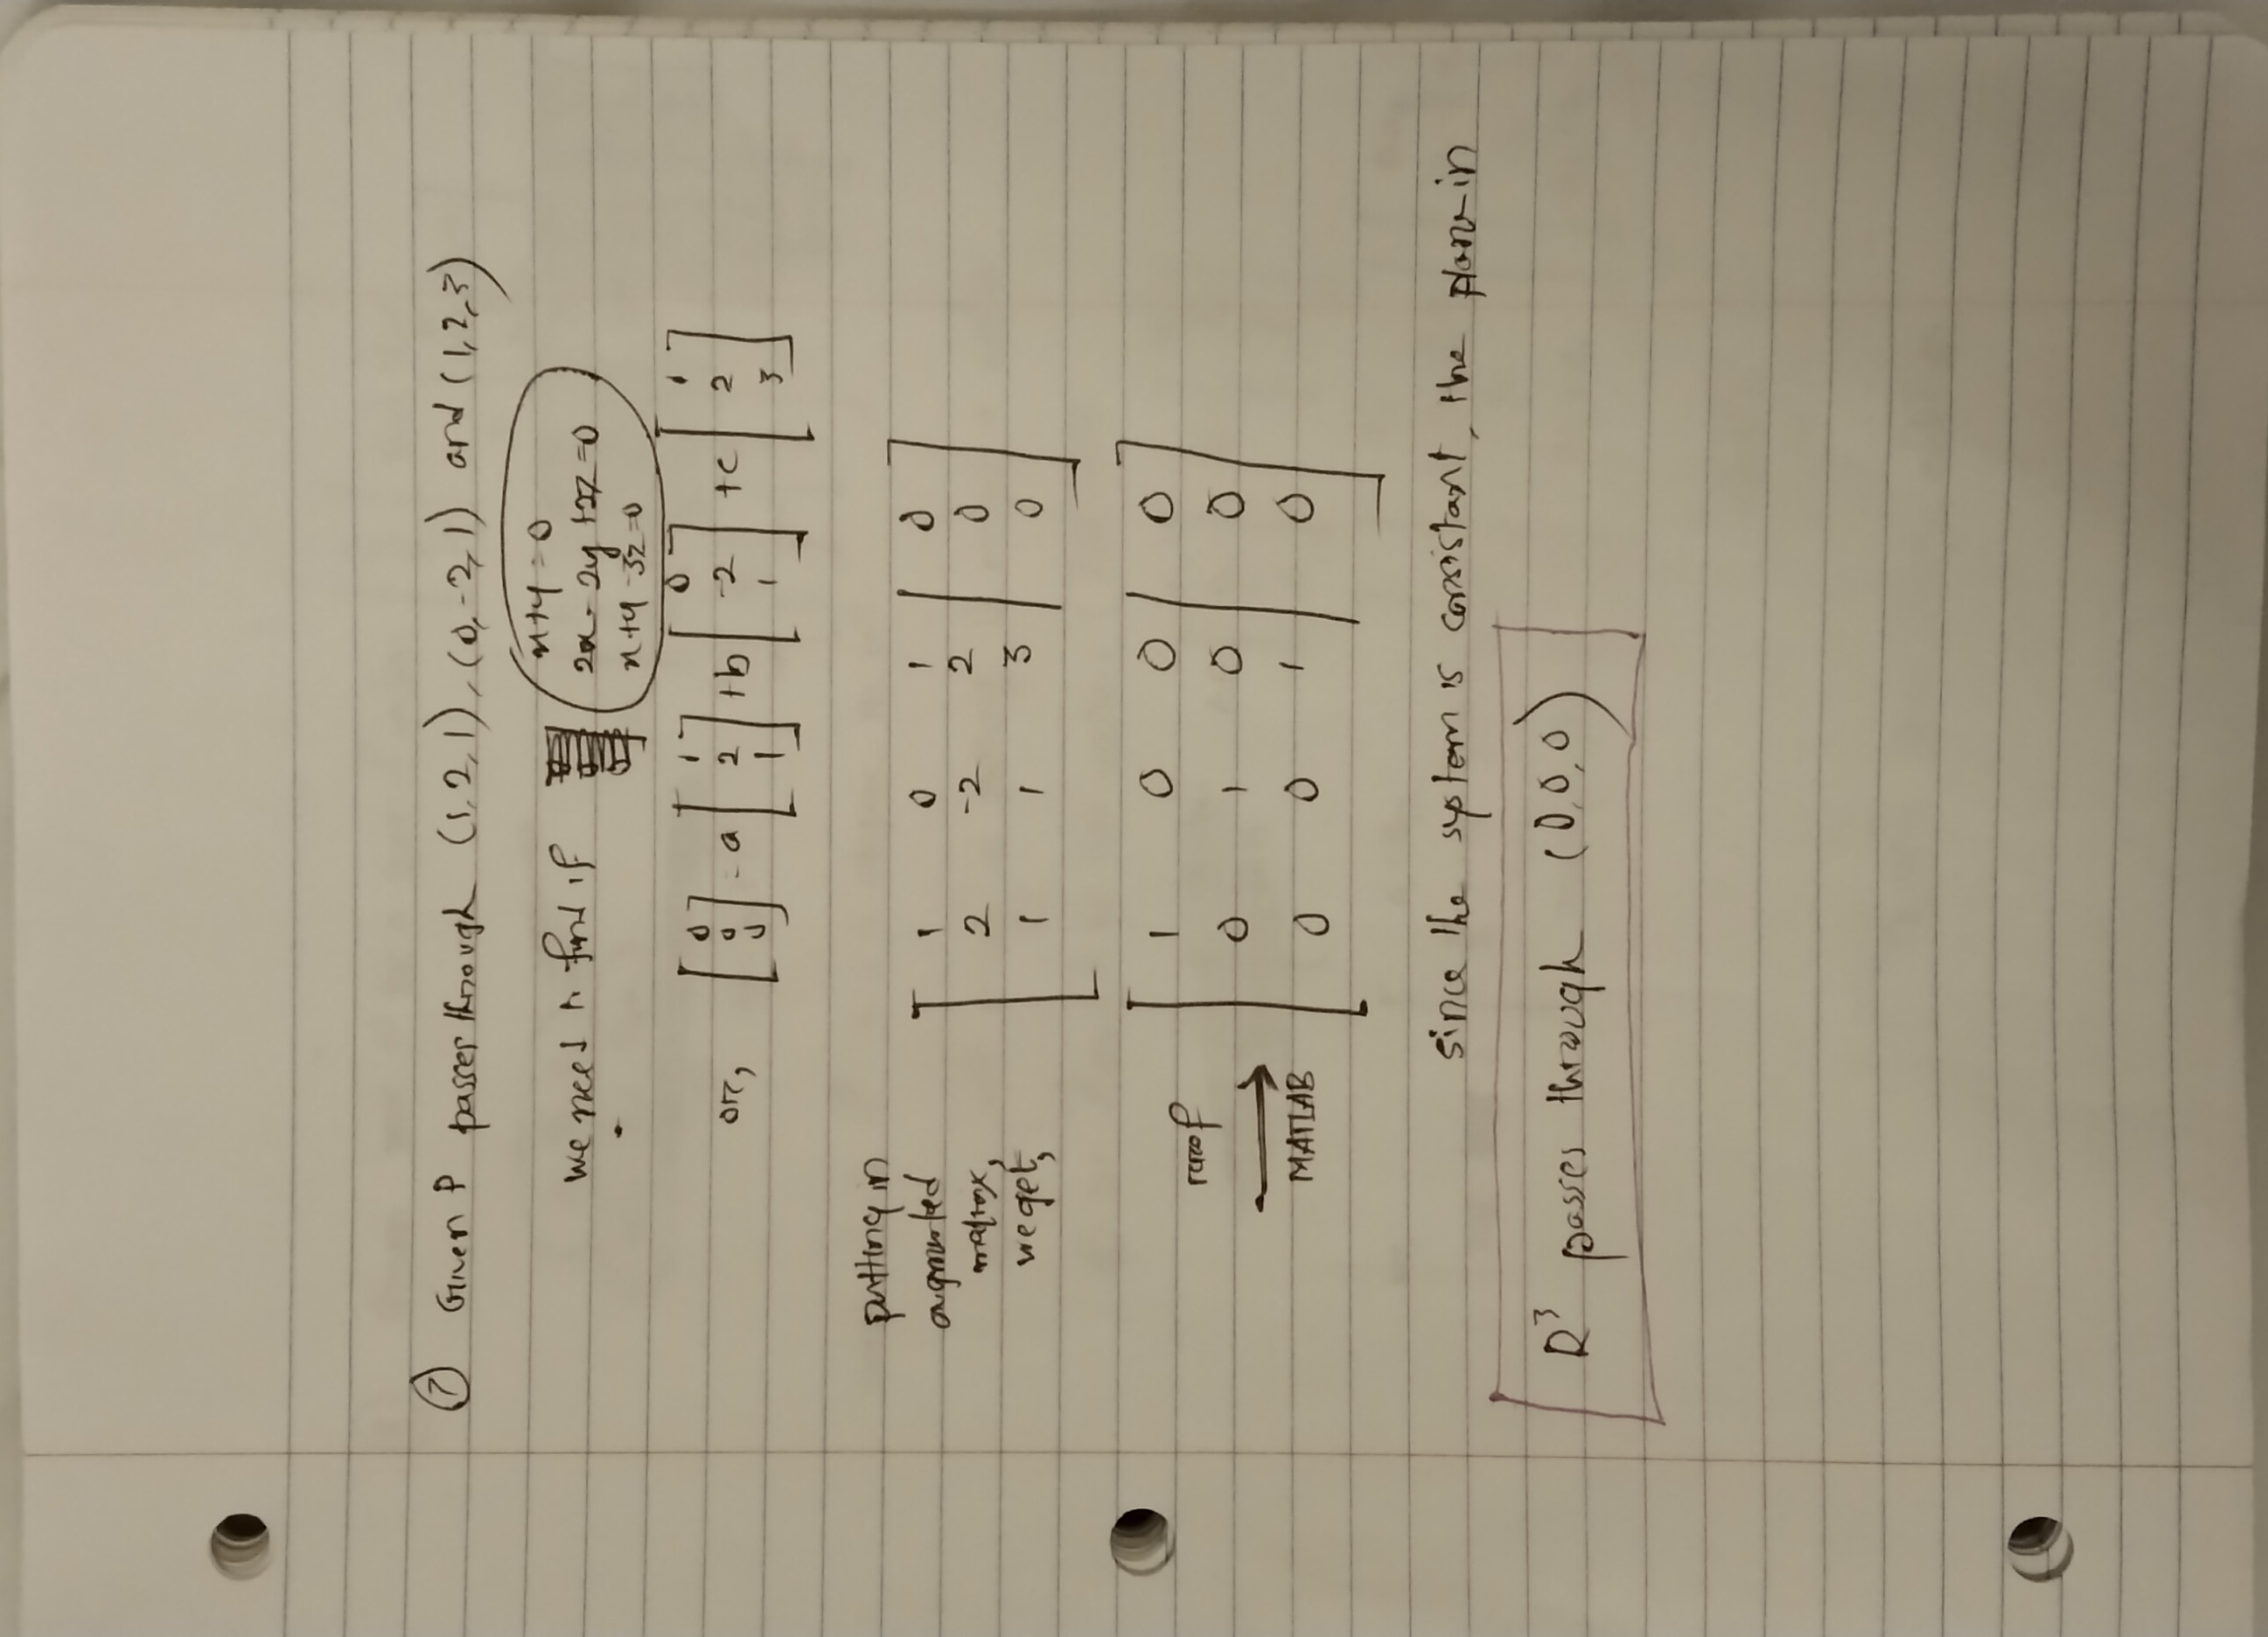 ⑦ Given P passes through (1,2,1), (0,-2,1) and (1,2,3)
we need to find if
x+y=0
2x-2y+2z=0
x+y-3z=0
or, [0 0 0] = a [1 2 1] + b [0 -2 1] + c [1 2 3]
putting in
augmented
matrix,
we get,
1 0 1 | 0
2 -2 2 | 0
1 1 3 | 0
rref
MATLAB
1 0 0 | 0
0 1 0 | 0
0 0 1 | 0
since the system is consistant, the plane in
R³ passes through (0,0,0)